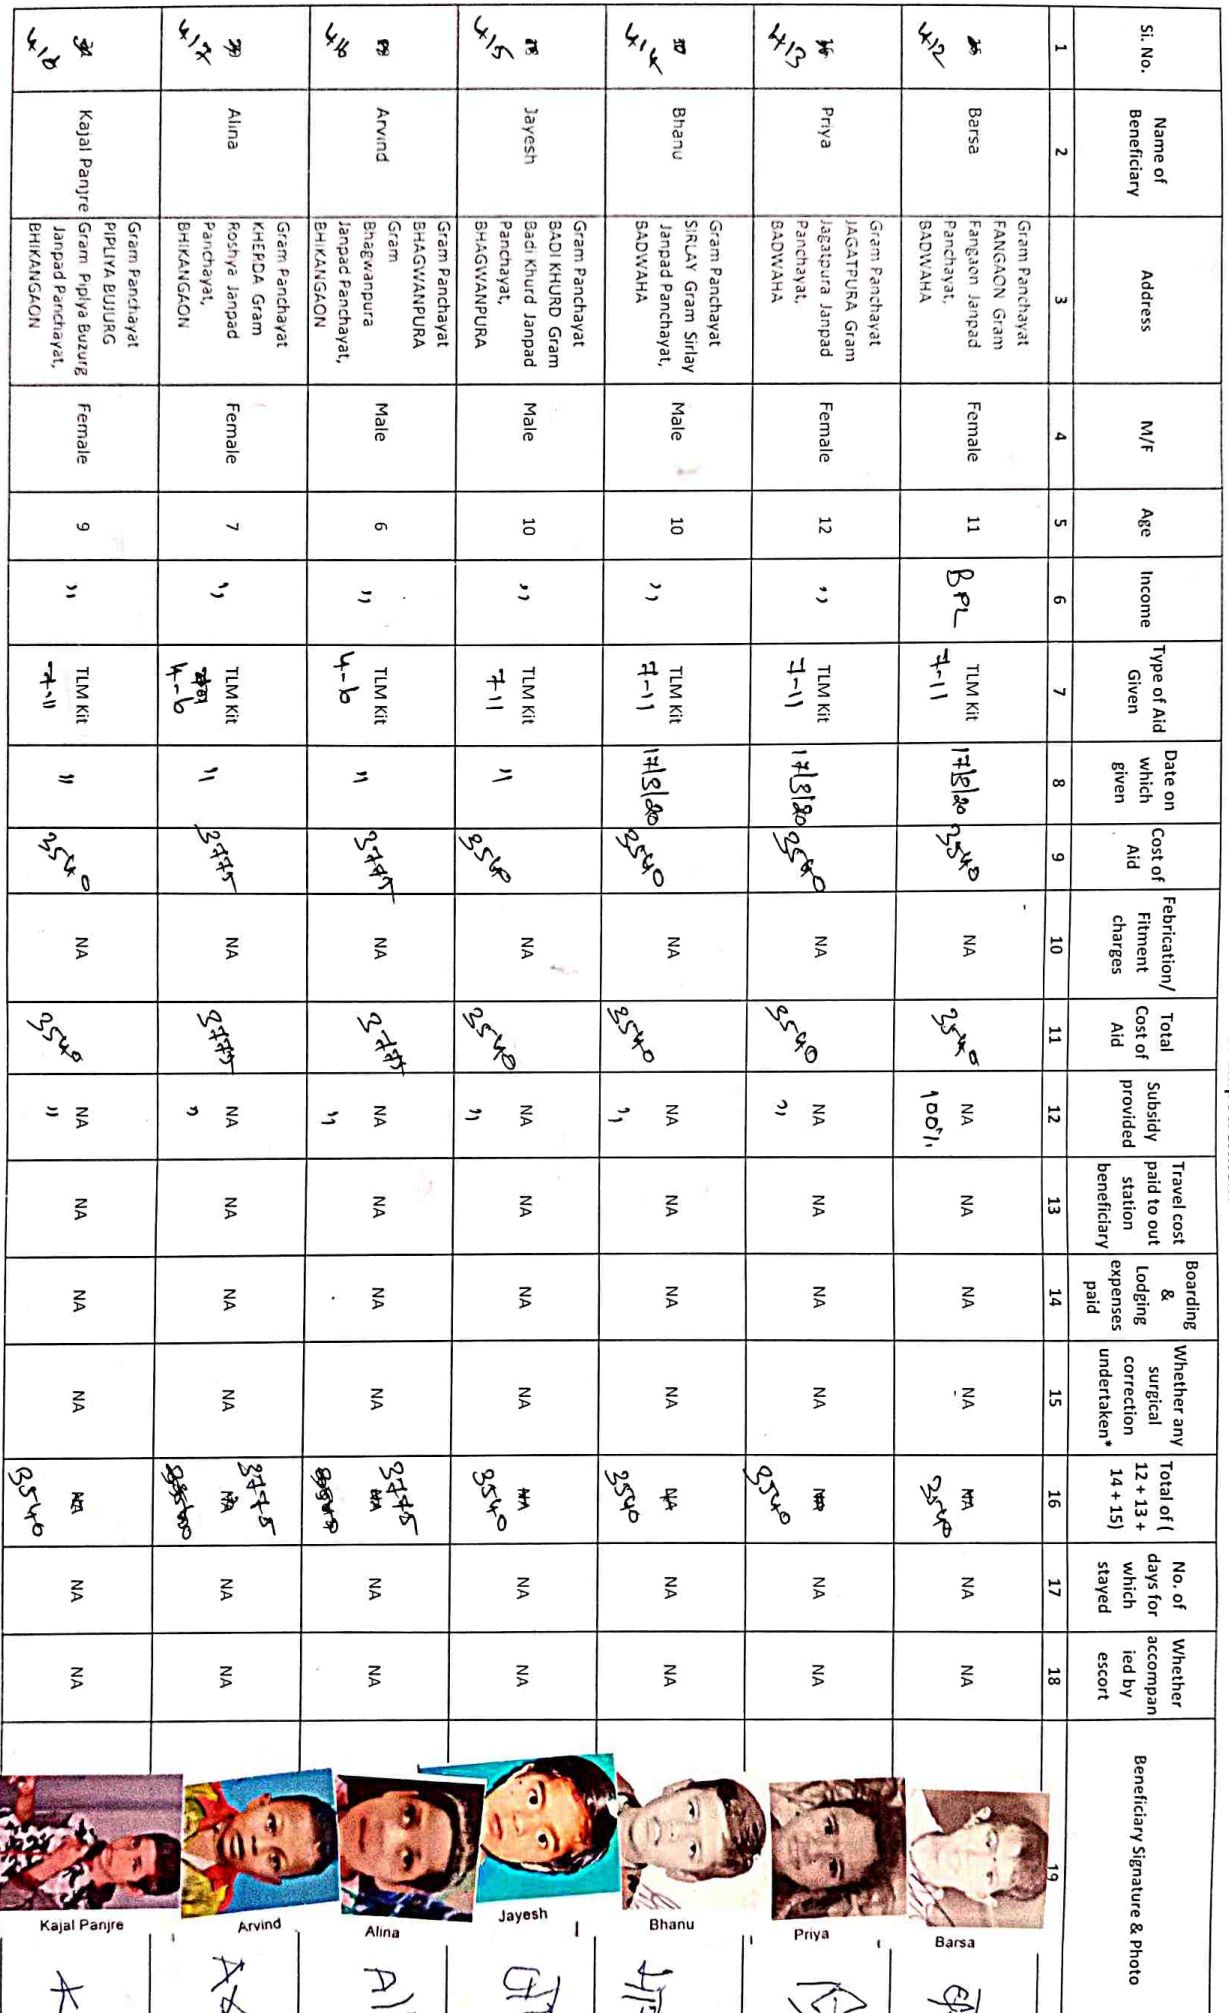 Sl. No.
Name of
Beneficiary
Address
M/F
Age
Income
Type of Aid
Given
Date on
which
given
Cost of
Aid
Febrication/
Fitment
charges
Total
Cost of
Aid
Subsidy
provided
Travel cost
paid to out
station
beneficiary
Boarding
&
Lodging
expenses
paid
Whether any
surgical
correction
undertaken*
Total of (
12 + 13 +
14 + 15)
No. of
days for
which
stayed
Whether
accompan
ied by
escort
Beneficiary Signature & Photo
1
2
3
4
5
6
7
8
9
10
11
12
13
14
15
16
17
18
19
412
Barsa
Gram Panchayat
FANGAON Gram
Fangaon Janpad
Panchayat,
BADWAHA
Female
11
BPL
TLM Kit
7-11
17/8/20
3540
NA
3540
NA
100%
NA
NA
NA
NA
3540
NA
NA
Barsa
413
Priya
Gram Panchayat
JAGATPURA Gram
Jagatpura Janpad
Panchayat,
BADWAHA
Female
12
,,
TLM Kit
7-11
17/8/20
3540
NA
3540
NA
,,
NA
NA
NA
3540
NA
NA
Priya
414
Bhanu
Gram Panchayat
SIRLAY Gram Sirlay
Janpad Panchayat,
BADWAHA
Male
10
,,
TLM Kit
7-11
17/8/20
3540
NA
3540
NA
,,
NA
NA
NA
NA
3540
NA
NA
Bhanu
415
Jayesh
Gram Panchayat
BADI KHURD Gram
Badi Khurd Janpad
Panchayat,
BHAGWANPURA
Male
10
,,
TLM Kit
7-11
,,
3540
NA
3540
NA
,,
NA
NA
NA
NA
3540
NA
NA
Jayesh
416
Arvind
Gram Panchayat
BHAGWANPURA
Gram
Bhagwanpura
Janpad Panchayat,
BHIKANGAON
Male
6
,,
TLM Kit
4-6
,,
3775
NA
3775
NA
,,
NA
NA
NA
NA
3775
NA
NA
Alina
417
Alina
Gram Panchayat
KHERDA Gram
Roshya Janpad
Panchayat,
BHIKANGAON
Female
7
,,
TLM Kit
4-6
,,
3775
NA
3775
NA
,,
NA
NA
NA
3775
NA
NA
NA
Arvind
418
Kajal Panjre
Gram Panchayat
PIPLIYA BUJURG
Gram Piplya Buzurg
Janpad Panchayat,
BHIKANGAON
Female
9
,,
TLM Kit
7-11
,,
3540
NA
3540
NA
,,
NA
NA
NA
NA
3540
NA
NA
Kajal Panjre